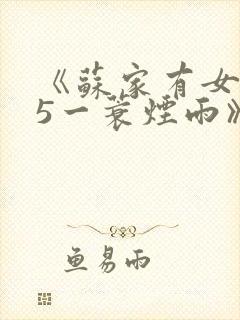 《蘇家有女
5一蓑煙雨》
鱼易雨